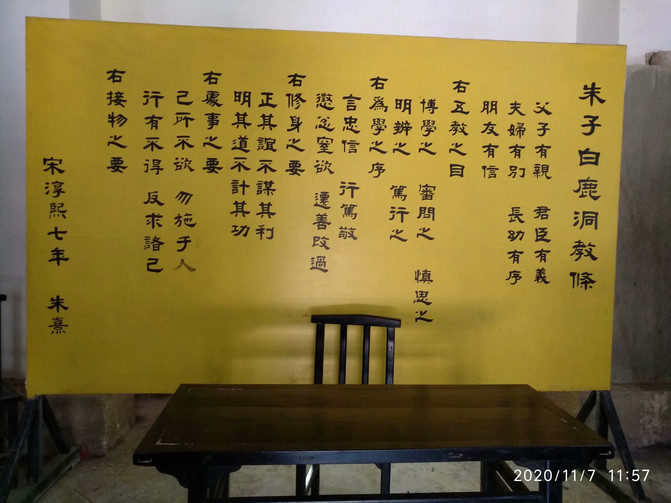 朱子白鹿洞教條
父子有親 君臣有義
夫婦有別 長幼有序
朋友有信
右五教之目
博學之 審問之 慎思之
明辨之 篤行之
右為學之序
言忠信 行篤敬
懲忿窒欲 遷善改過
右修身之要
正其誼不謀其利
明其道不計其功
右處事之要
己所不欲 勿施于人
行有不得 反求諸己
右接物之要
宋淳熙七年 朱熹
2020/11/7 11:57